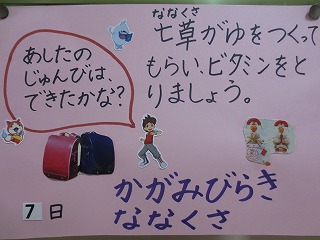 ななくさ
七草がゆをつくって
もらい、ビタミンをと
りましょう。
あしたの
じゅんびは、
できたかな?
かがみびらき
ななくさ
7日